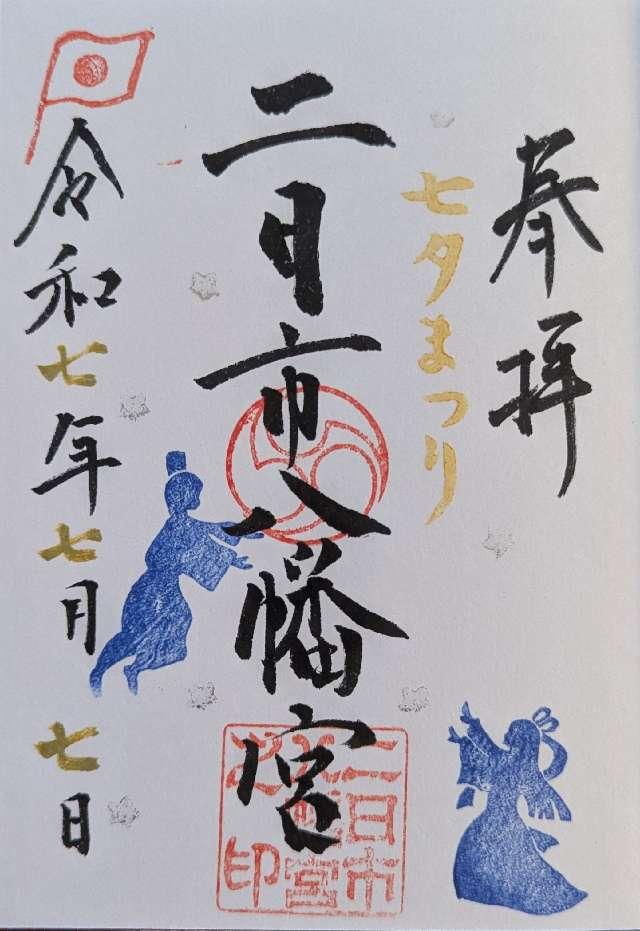 奉拝
七夕まつり
二日市八幡宮
令和七年七月七日
二日市
八幡宮
之印